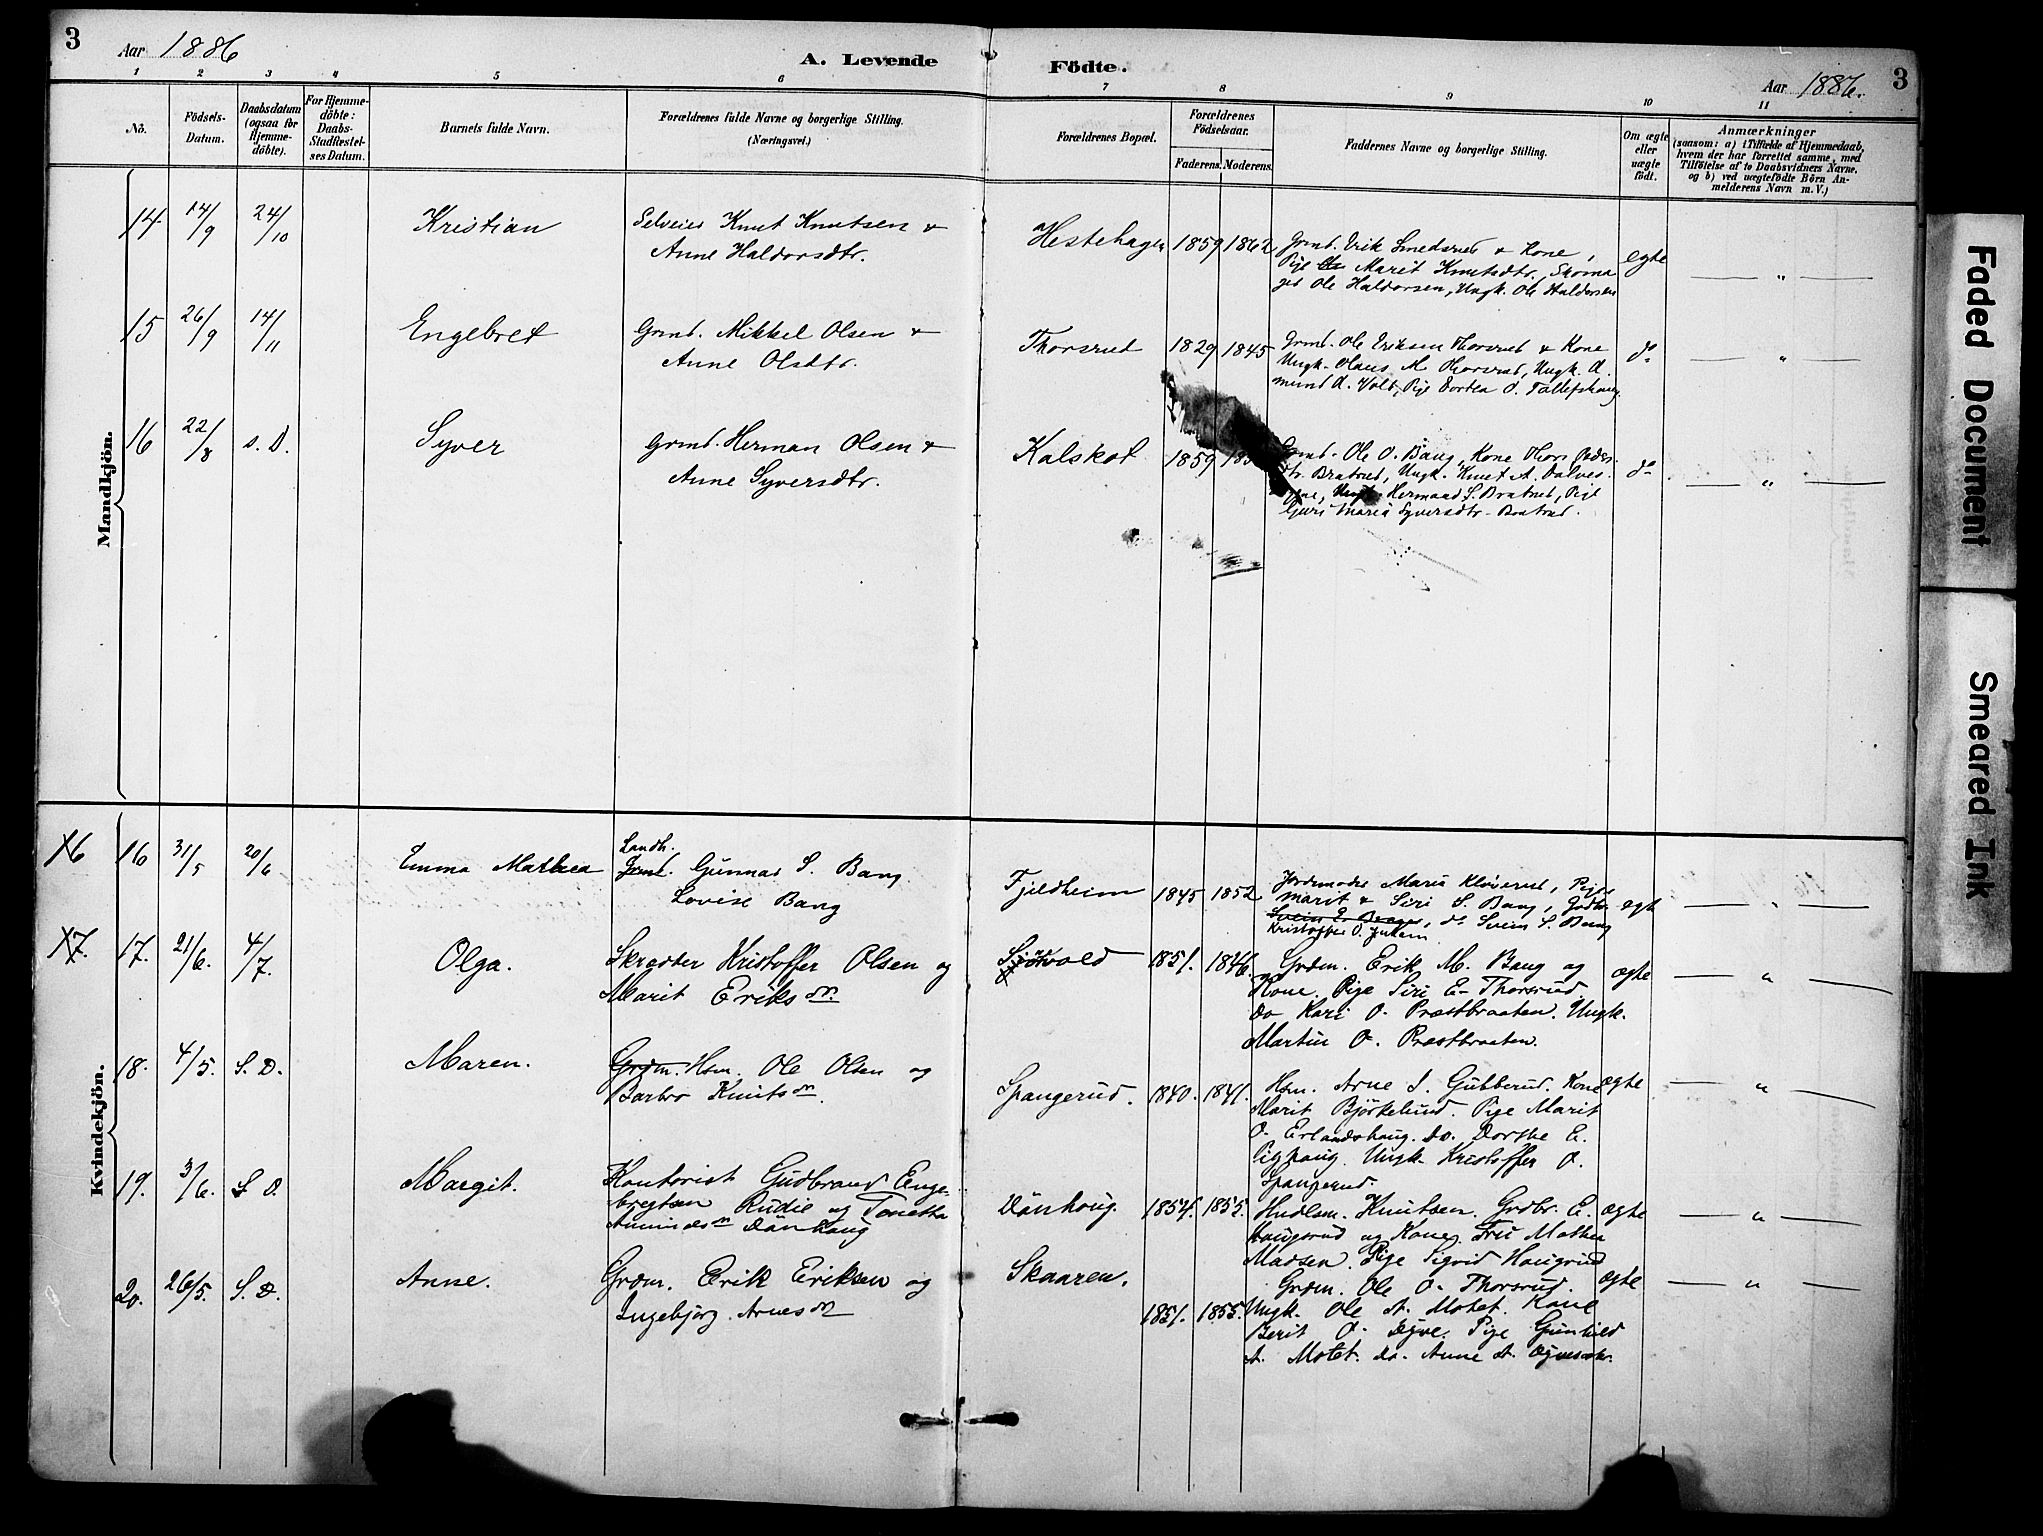 3
Aar 1886
A. Levende Födte.
Aar 1886.
3
1 2 3 4 5 6 7 8 9 10 11
No.
Födsels-Datum.
Daabsdatum (ogsaa for Hjemme-döbte).
For Hjemme-döbte: Daabs-Stadfæstel-ses Datum.
Barnets fulde Navn.
Forældrenes fulde Navne og borgerlige Stilling.
(Næringsvei.)
Forældrenes Bopæl.
Forældrenes Födselsaar.
Faderens. Moderens.
Faddernes Navne og borgerlige Stilling.
Om ægte eller uægte födt.
Anmærkninger
(saasom: a) i Tilfælde af Hjemmedaab,
hvem der har forrettet samme, med
Tilföielse af to Daabsvidners Navne.
og b) ved uægtefödte Börn An-
melderens Navn m. V.)
Mandkjön.
14 14/9 24/10 Kristian Selveier Knut Knutsen &
Anne Haldorsdtr.
Hestehagen 1859 1862
Grmd. Erik Smedsrud & Kone,
Pige Marit Knutsdtr, Skoma
ger Ole Haldorsen, Ungk. Ole Haldorsen
egte — " —
15 26/9 14/11 Engebret Grmd. Mikkel Olsen &
Anne Olsdtr.
Thorsrud 1829 1845
Grmd. Ole Eriksen Thorsrud & Kone
Ungk. Olaus M. Thorsrud, Ungk. A.
mund A. Vold, Pige Dortea O. Tollefshaug.
do — " —
16 22/8 s. D. Syver Grmd. Herman Olsen &
Anne Syversdtr.
Kalskot 1859
Grmd. Ole O. Bang, Kone Thore Peders
dtr. Bratrud, Ungk. Knut A.
Ungk. Hermand S. Bratrud, Pige
Guri Maria Syversdtr. Bratrud.
do — " —
Kvindekjön.
16 16 31/5 20/6 Emma Mathea Landh.
Grmd. Gunnar S. Bang
Lovise Bang
Fjeldheim 1845 1852
Jordemoder Maria Kløverud, Pige
Marit & Siri S. Bang, Gdbr.
do Svein S. Bang
Kristoffer O. Juklem
egt — " —
17 17. 21/6. 4/7. Olga. Skrædder Kristoffer Olsen og
Marit Eriksdr.
1851. 1846.
Grdm. Erik M. Bang og
Kone. Pige Siri E. Thorsrud
do Kari O. Præstbraaten. Ungk.
Martin O. Præstbraaten.
ægte — " —
18. 4/5. S. D. Maren. Grdm. Hsm. Ole Olsen og
Barbro Knutsdr.
Spangerud. 1840. 1841.
Hsm. Arne I. Gubberud. Kone
Marit Björkelund. Pige Marit
O. Erlandshaug. do. Dorthe E.
Pighaug. Ungk. Kristoffer O.
Spangerud.
ægte — " —
19. 3/6. S. D. Margit. Kontorist Gudbrand Enge-
bregtsen Rudie og Tonetta
Amundsdr Dänhaug
Dänhoug. 1854. 1855.
Hndlsm. Knutsen. Grdbr. E.
Haugsrud og Kone. Fru Mathea
Madsen. Pige Sigrid Haugrud
ægte — " —
20. 26/5. S. D. Anne. Grdm. Erik Eriksen og
Ingebjörg Arnesdr
Skaaren. 1851. 1855.
Grdm. Ole O. Thorsrud.
Ungk. Ole A. Motet. Kone
Berit O. Dyve. Pige Gunhild
A. Motet. do. Anne A.
ægte — " —
Faded Document
Smeared Ink